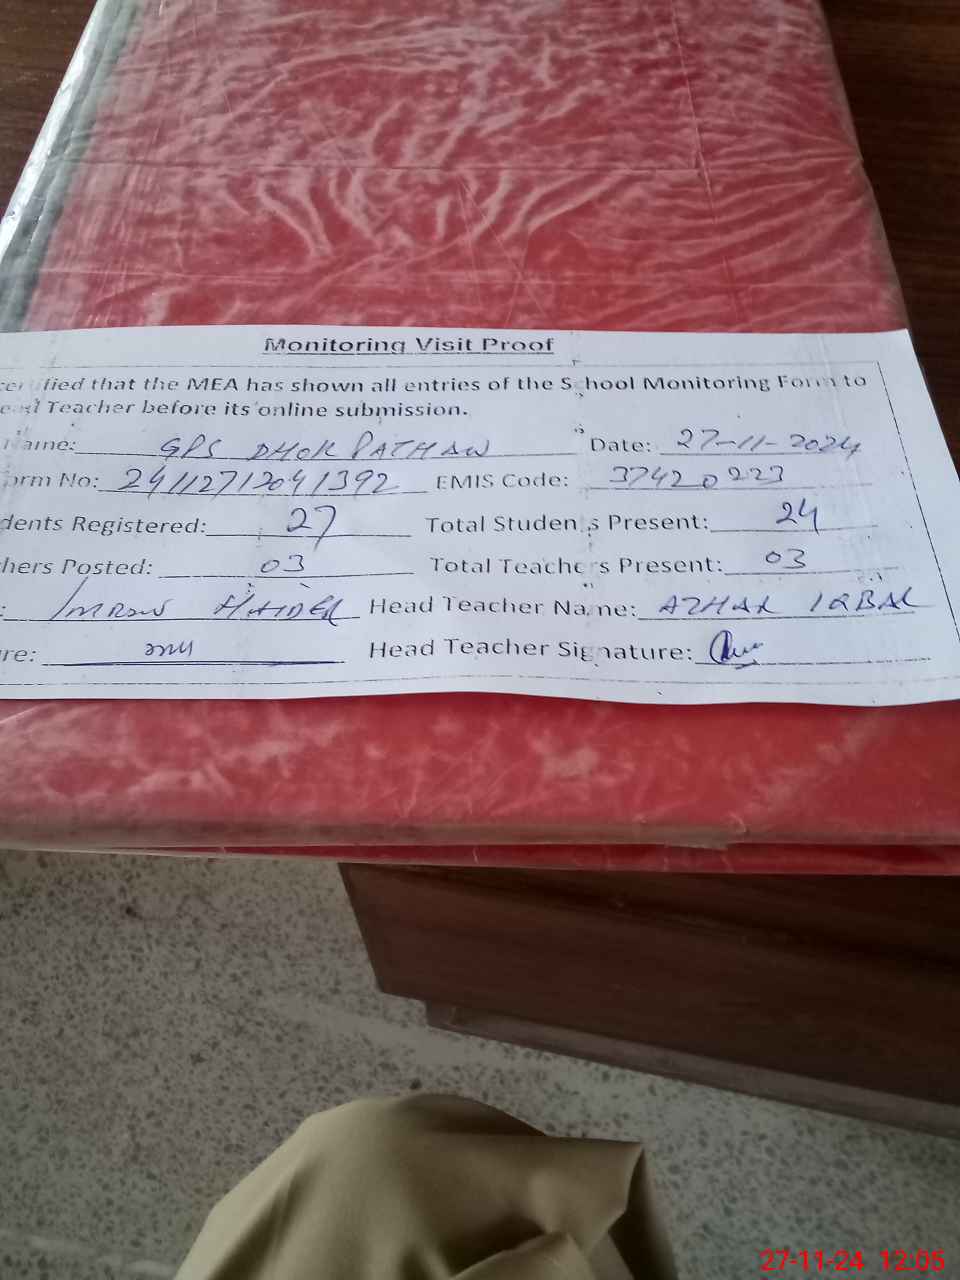 Monitoring Visit Proof
certified that the MEA has shown all entries of the School Monitoring Form to
ead Teacher before its online submission.
Name: GPS DHOK PATHAN Date: 27-11-2024
orm No: 24112712041392 EMIS Code: 37420223
dents Registered: 27 Total Students Present: 24
hers Posted: 03 Total Teachers Present: 03
: IMRAN HAIDER Head Teacher Name: AZHAR IQBAL
re: Head Teacher Signature:
27-11-24 12:05